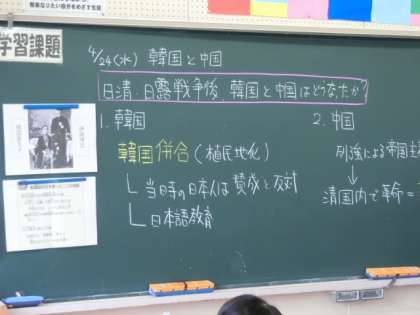 学習課題
4/24(水) 韓国と中国
日清・日露戦争後、韓国と中国はどうなったか?
1. 韓国
韓国併合(植民地化)
当時の日本人は賛成と反対
日本語教育
2. 中国
列強による帝国主
↓
清国内で革命=